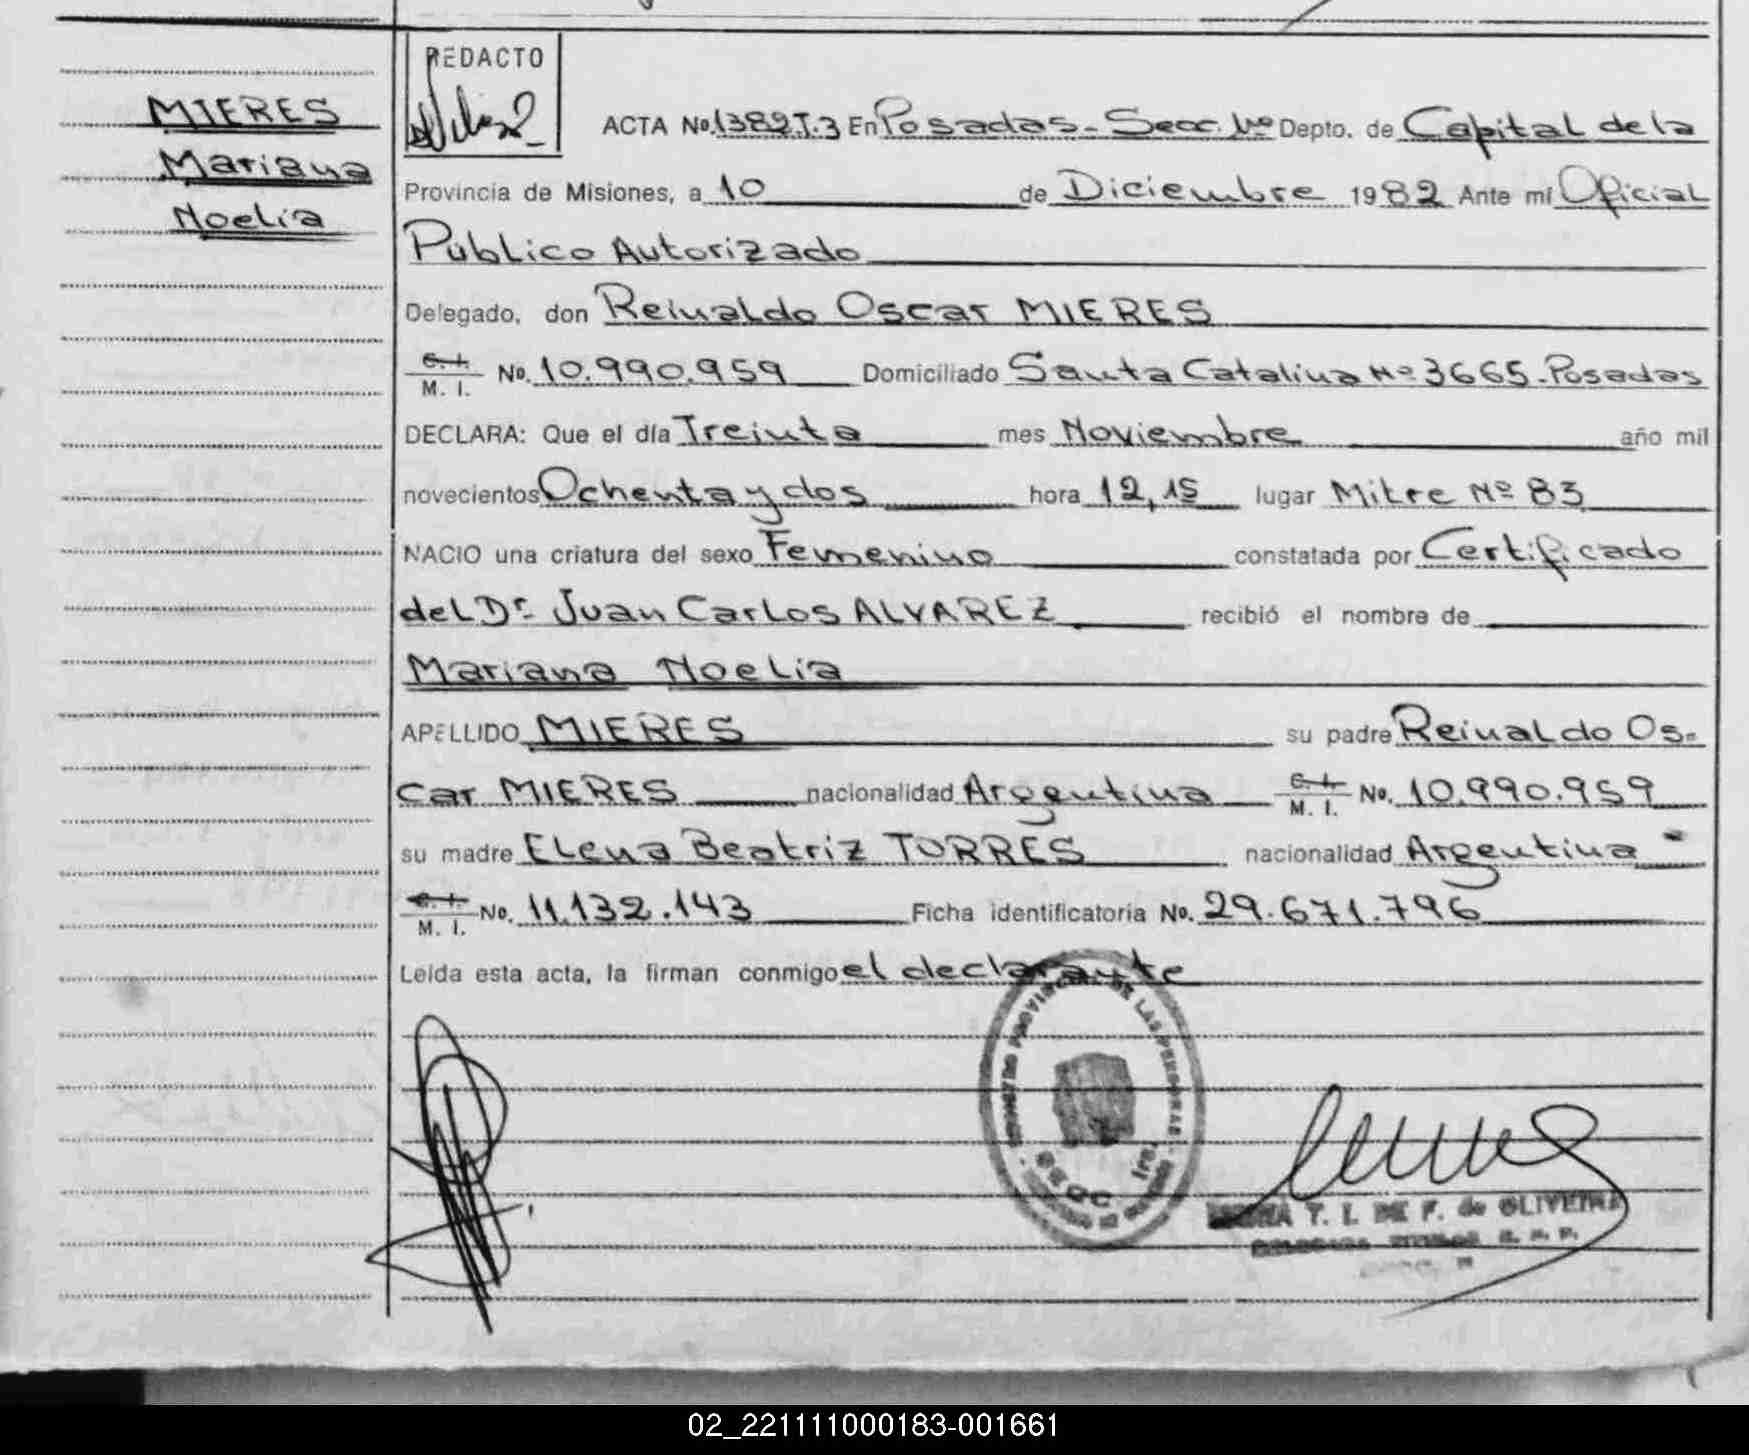 MIERES
Mariana
Noelia
REDACTO
ACTA No. 1382 T. 3 En Posadas - Secc. 1ª Depto. de Capital de la
Provincia de Misiones, a 10 de Diciembre 1982 Ante mí Oficial
Público Autorizado
Delegado, don Reinaldo Oscar MIERES
C. I. / M. I. No. 10.990.959 Domiciliado Santa Catalina Nº 3665 - Posadas
DECLARA: Que el día Treinta mes Noviembre año mil
novecientos Ochenta y dos hora 12,15 lugar Mitre Nº 83
NACIO una criatura del sexo Femenino constatada por Certificado
del Dr. Juan Carlos ALVAREZ recibió el nombre de
Mariana Noelia
APELLIDO MIERES su padre Reinaldo Os-
car MIERES nacionalidad Argentina C. I. / M. I. No. 10.990.959
su madre Elena Beatriz TORRES nacionalidad Argentina -
C. I. / M. I. No. 11.132.143 Ficha identificatoria No. 29.671.796
Leída esta acta, la firman conmigo el declarante
REGISTRO PROVINCIAL DE LAS PERSONAS
SECC. 1ra.
T. I. DE F. de OLIVEIRA
02_221111000183-001661